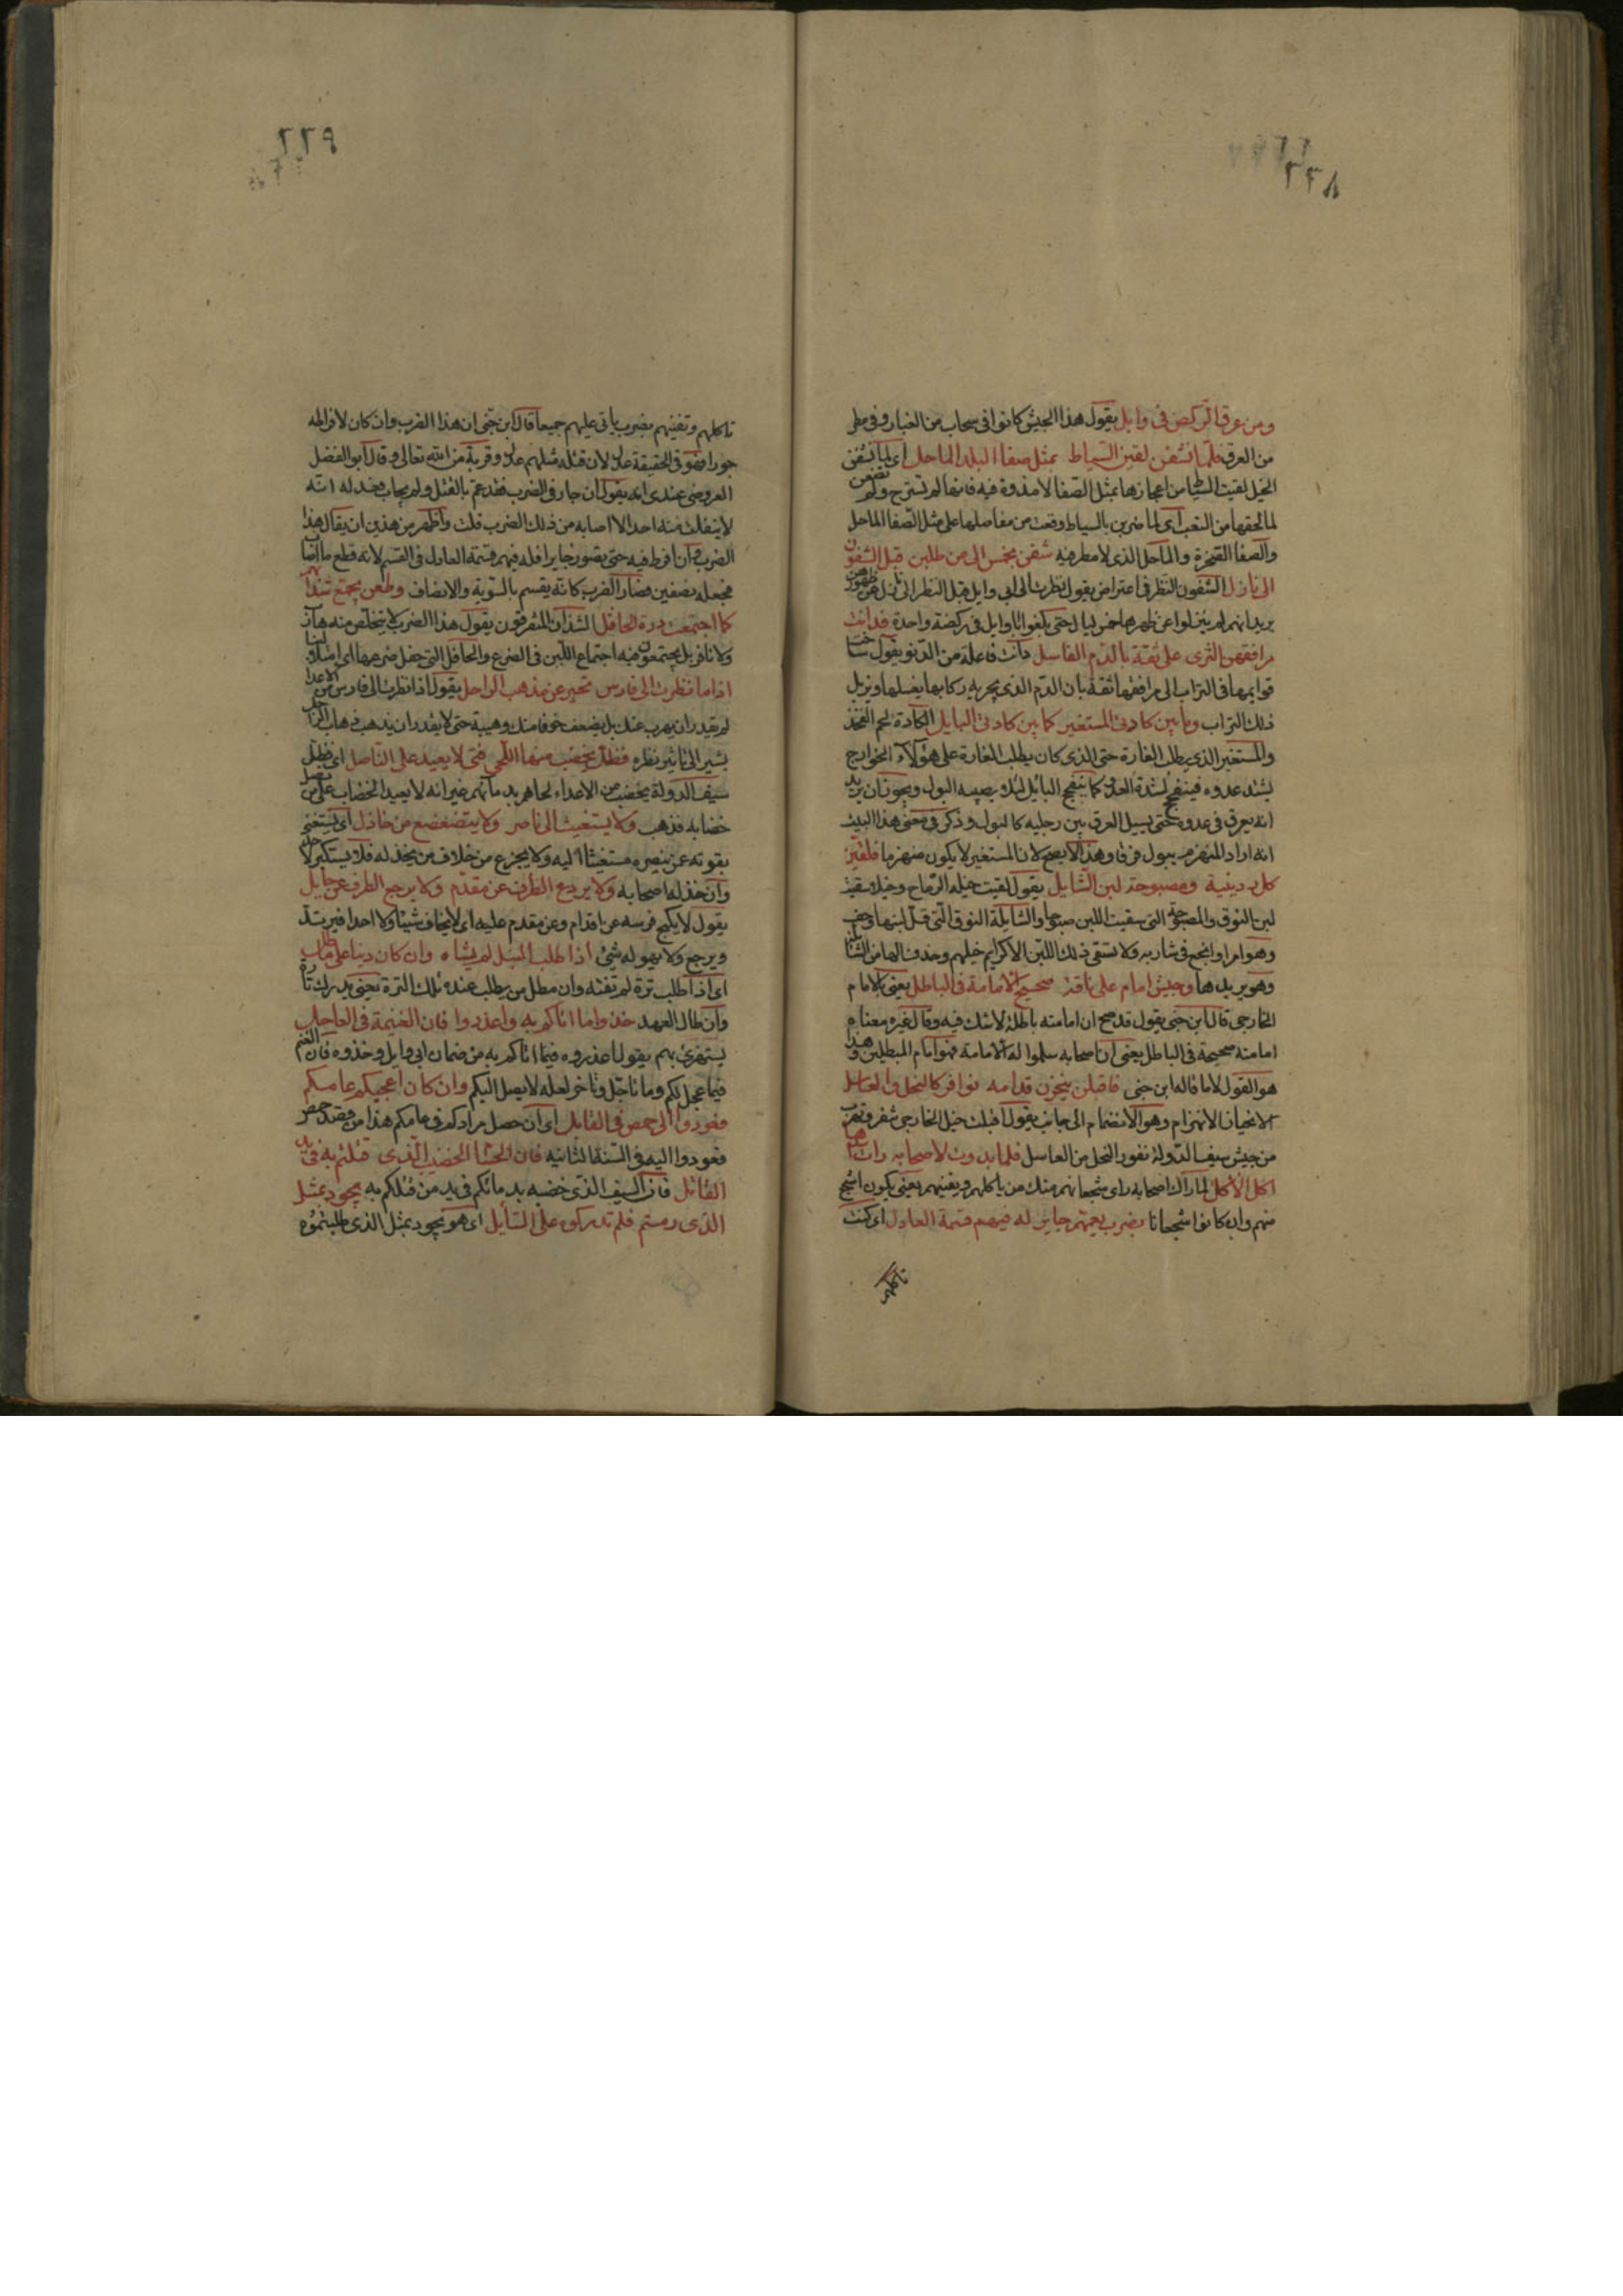 ٢٢٨
ومن عرق الركض فى وابل يقول هذا الجيش كانوا فى سحاب من الغبار وفى مطر
من العرق فلما نشفن لقين السياط بمثل صفا البلد الماحل اى لما نشفن
الخيل لقيت السياط من اعجازها بمثل الصفا لا نذوة فيه فانها لم تسترح ولم
لما لحقها من التعب اى لما ضربن بالسياط وقعت من مفاصلها على مثل الصفا الماحل
والصفا الصخرة والماحل الذى لا مطر فيه شفن بخمس الى من طلبن قبل الشفون
الى نازل الشفون النظر فى اعتراض يقول نظرت الى ابى وايل قبل النظر الى نازل عن ظهورهن
يريد انهم لم ينزلوا عن ظهرها خمس ليال حتى بلغوا ابا وايل فى ركضة واحدة فدانت
مرافقهن الثرى على ثقة بالدم الغاسل دانت فاعلت من الدنو يقول ساخت
قوايمها فى التراب الى مرافقها ثقة بان الدم الذى يجريه ركابها يغسلها ويزيل
ذلك التراب وما بين كاذتى المستغير كما بين كاذتى البايل الكاذة لحم الفخذ
والمستغير الذى يطلب الغارة حتى الذى كان يطلب الغارة على هؤلاء الخوارج
يشتد عدوه فينفج لشدة العدو كما ينفج البائل لئلا يصيبه البول ويجوز ان يريد
انه يعرق فى عدوه حتى يسيل العرق بين رجليه كالبول وذكر فى معنى هذا البيت
انه اراد المنهزم يبول فرقا وهذا لا يصح لان المستغير لا يكون منهزما فلقين
كل ردينية ومصبوحة لبن الشايل يقول لقيت خيله الرماح وخيلا سقيت
لبن النوق والمصبوحة التى سقيت اللبن صبوحا والشايلة النوق التى قل لبنها وخف
وهو امرا وانجع فى شاربه ولا تسقى ذلك اللبن الا كرايم خيلهم وحذف الها من الشائلة
وهو يريدها وجيش امام على ناقة صحيح الامامة فى الباطل يعنى بالامام
الخارجى قال ابن جنى يقول قد صح ان امامته باطلة لا شك فيه وقال غيره معناه
امامته صحيحة فى الباطل يعنى ان اصحابه سلموا له الامامة فهو امام المبطلين وهذا
هو القول لا ما قاله ابن جنى فاقبلن ينحزن قدامه نوافر كالنحل والعاسل
الانحياز الانهزام وهو الانضمام الى جانب يقول اقبلت خيل الخارجى تنفر وتهرب
من جيش سيف الدولة نفور النحل من العاسل فلما بدوت لاصحابه رات اسدها
اكل الآكل لما راك اصحابه راى شجعانهم منك من ياكلهم ويفنيهم يعنى يكون اشجع
منهم وان كانوا شجعانا بضرب يعمهم جاير له فيهم قسمة العادل اى كنت
تاكلهم
٢٢٩
تاكلهم وتفنيهم بضرب ياتى عليهم جميعا قال ابن جنى ان هذا الضرب وان كان لافراطه
جورا فهو فى الحقيقة عدل لان قتله مثلهم عدل وقربة من الله تعالى وقال ابو الفضل
العروضى عندى انه يقول ان جار فى الضرب فقد عم بالقتل ولم يحاب فعدله انه
لا ينفلت منه احد الا اصابه من ذلك الضرب قلت واظهر من هذين ان يقال هذا
الضرب وان افرط فيه حتى يصور جايرا فله فيهم قسمة العادل فى القسم لانه قطع ما اصاب
فجعله نصفين فصار الضرب كانه يقسم بالسوية والانصاف وطعن يجمع شذانهم
كما اجتمعت درة الحافل الشذان المتفرقون يقول هذا الضرب لا يتخلص منه هارب
ولا نافر بل يجتمعون فيه اجتماع اللبن فى الضرع والحافل التى حفل ضرعها اى امتلا لبنا
اذا ما نظرت الى فارس تحير عن مذهب الراحل يقول اذا نظرت الى فارس من الاعدا
لم يقدر ان يهرب عنك بل يضعف خوفا منك وهيبة حتى لا يقدر ان يذهب ذهاب الراجل
يشير الى تاثير نظره فظل يخضب منها اللحى فتى لا يعيد على الناصل اى فظل
سيف الدولة يخضب من الاعداء لحاهم بدمائهم غير انه لا يعيد الخضاب على من نصل
خضابه فذهب ولا يستغيث الى ناصر ولا يتضعضع من خاذل اى يستغنى
بقوته عن ينصره مستغيثا اليه ولا يجزع من خلاف من يخذله فلا يستكين لاحد
وان خذله اصحابه ولا يردع الطرف عن مقدم ولا يرجع الطرف عن هايل
يقول لا يكبح فرسه عن اقدام وعن مقدم عليه اى لا يخاف شيئا ولا احدا فيرتد
ويرجع ولا يهوله شئ اذا طلب التبل لم يشاه وان كان دينا على ماطل
اى اذا طلب ترة لم تفته وان مطل من يطلب عنده تلك الترة يعنى يدرك ثاره
وان طال العهد خذوا ما اتاكم به واعذروا فان الغنيمة فى العاجل
يستهزئ بهم يقول اعذروه فيما اتاكم به من ضمان ابى وايل وخذوه فان الغنم
فيما عجل لكم وما تاجل وتاخر لعله لا يصل اليكم وان كان اعجبكم عامكم
فعودوا الى حمص فى القابل اى ان حصل مرادكم فى عامكم هذا من قصد حمص
فعودوا اليه فى السنة الثانية فان الحسام الخضيب الذى قتلتم به فى يد
القاتل فان السيف الذى خضبه بدمائكم فى يد من قتلكم به يجود بمثل
الذى رمتم فلم تدركوه على السائل اى هو يجود بمثل الذى طلبتموه